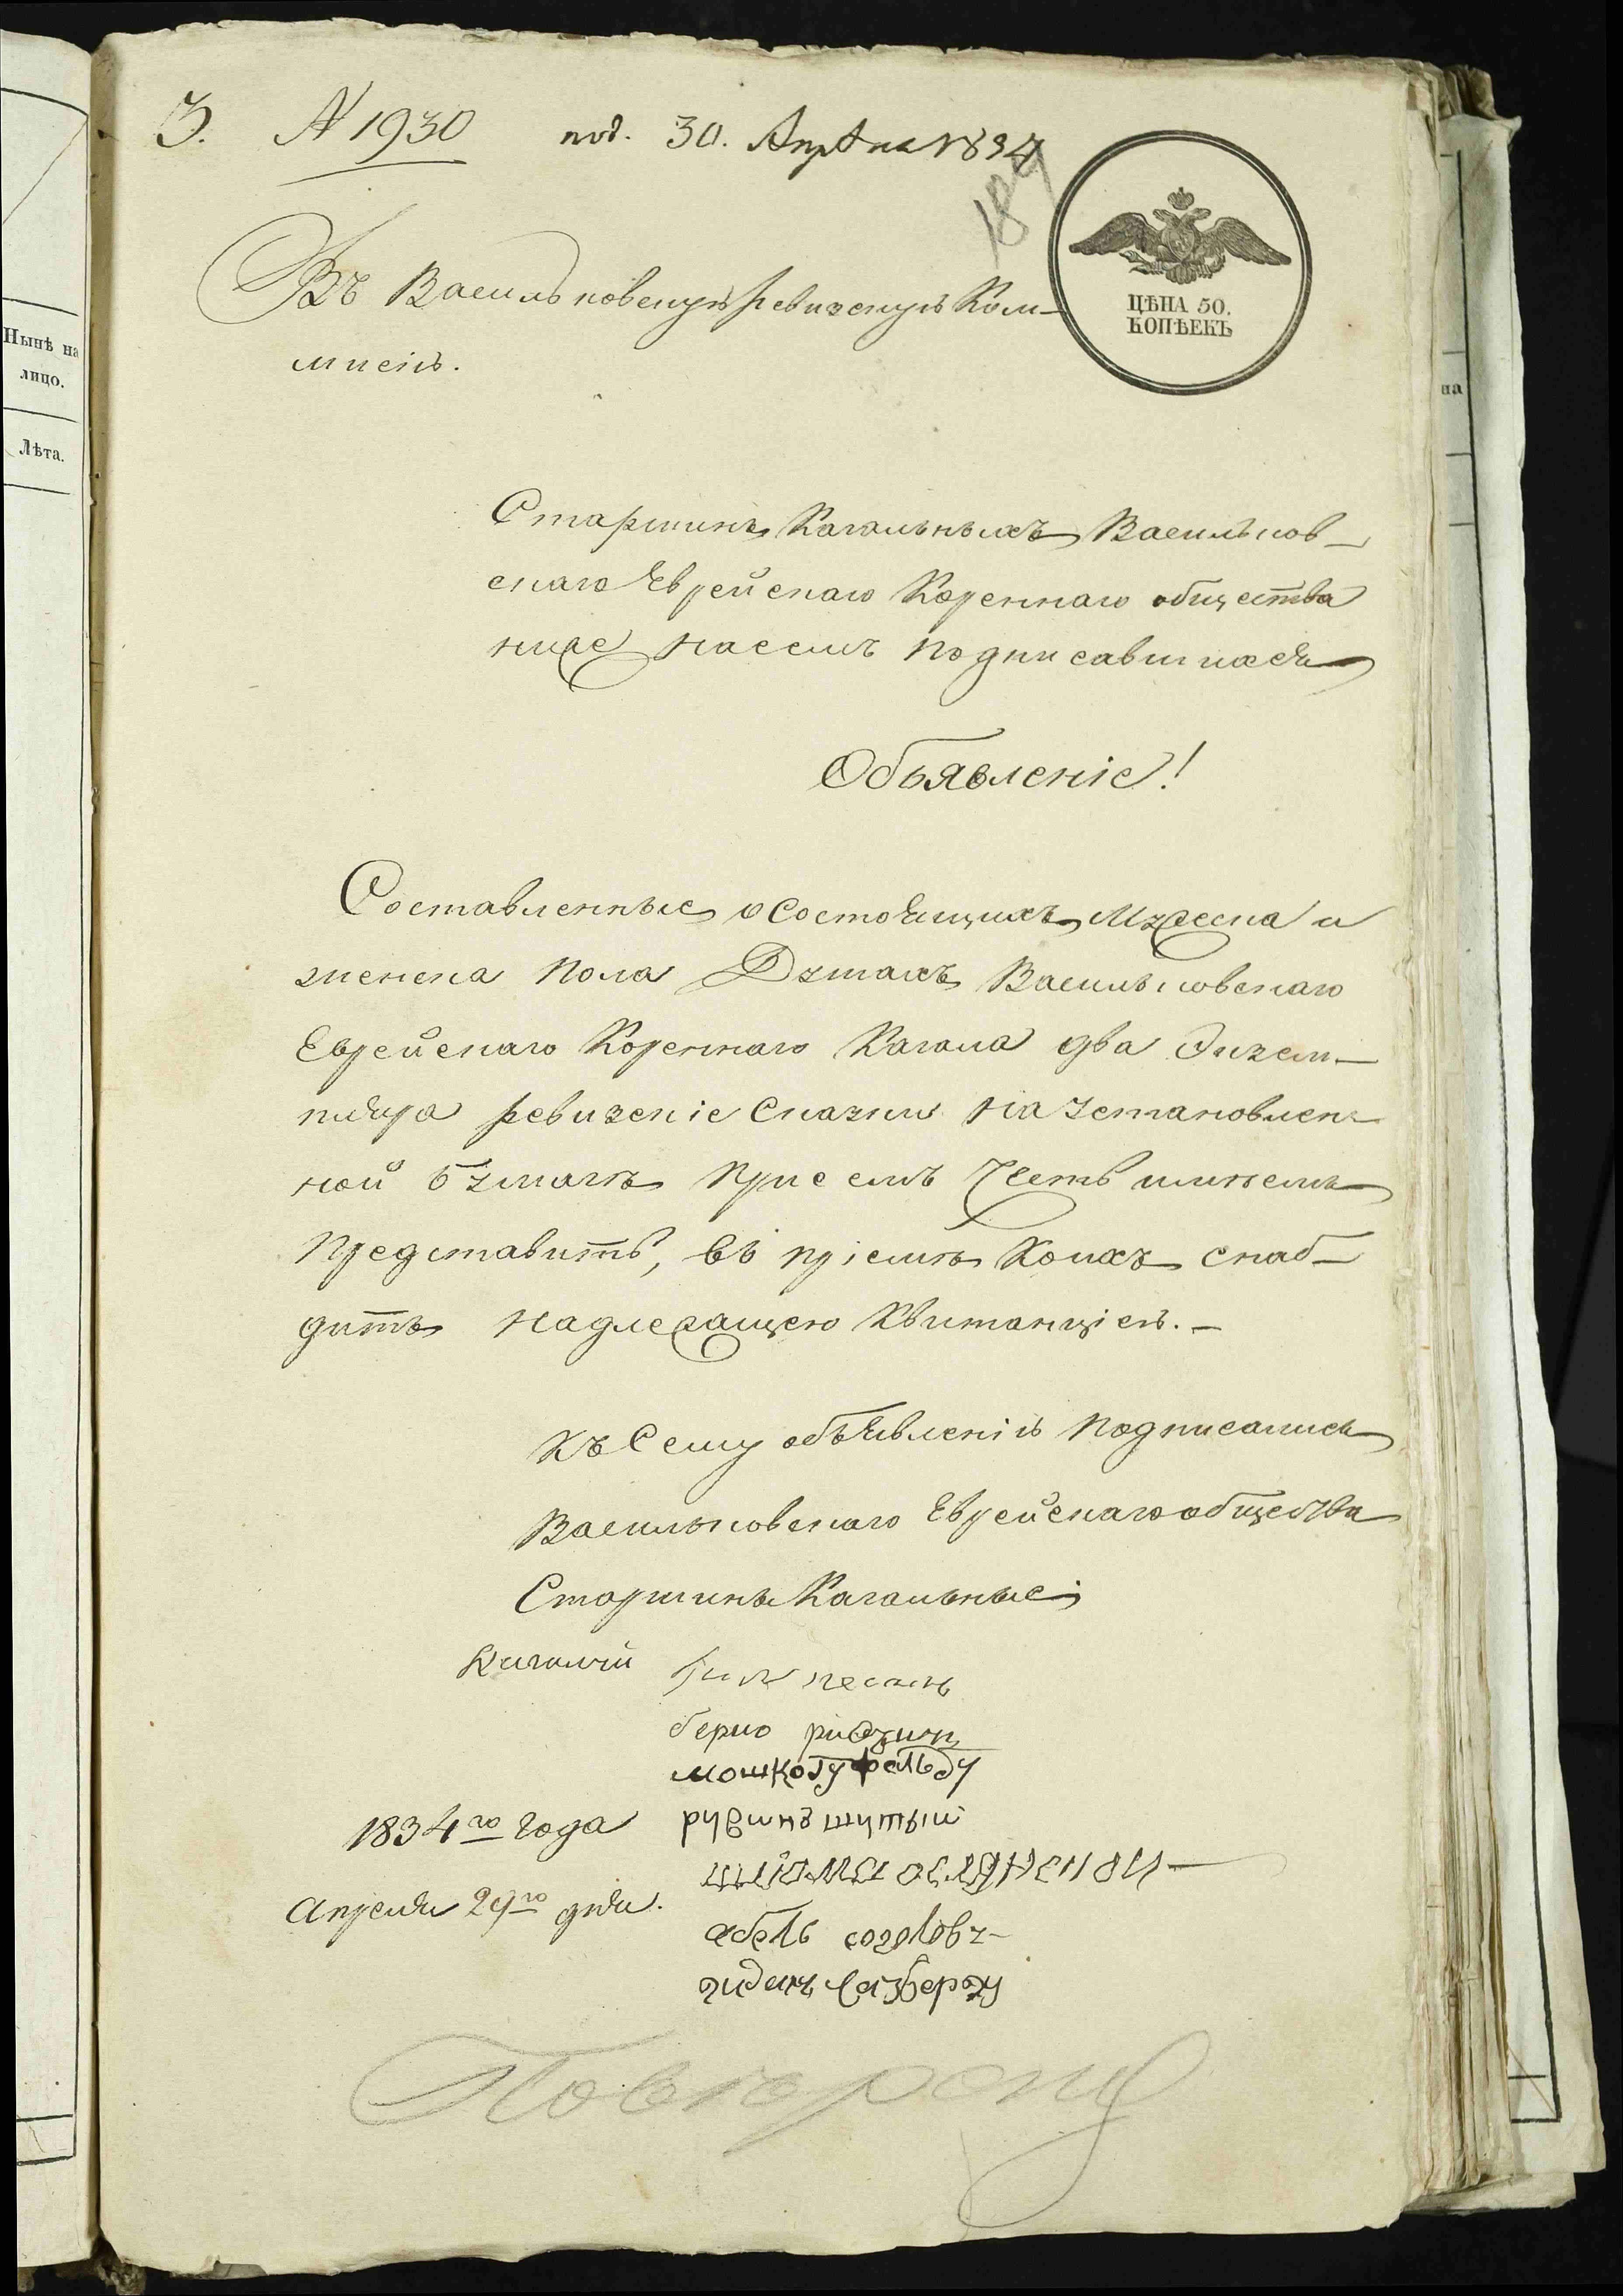 3. N 1930 под. 30. Апрѣля 1834
189
ЦѢНА 50.
КОПѢЕКЪ
Въ Васильковскую ревизскую Ком-
мисію.
Нынѣ на
лицо.
Лѣта.
на
Старшинъ Кагальныхъ Васильков-
скаго Еврейскаго Кореннаго общества
ниже насемъ подписавшихся
Объявленіе!
Составленные о состоящихъ Мужеска и
женска пола Душахъ Васильковскаго
Еврейскаго Кореннаго Кагала два Экзем-
пляра ревизскіе Сказки на установлен-
ной бумаге при семъ Честь имеемъ
представить, въ пріеме коихъ снаб-
дить надлежащею Квитанціею. -
Къ Сему объявленію подписались
Васильковскаго Еврейскаго общества
Старшины Кагальные
берко
мошко гуфельду
рувинъ шутый
1834го года
Апреля 29го дня.
абель соголовъ